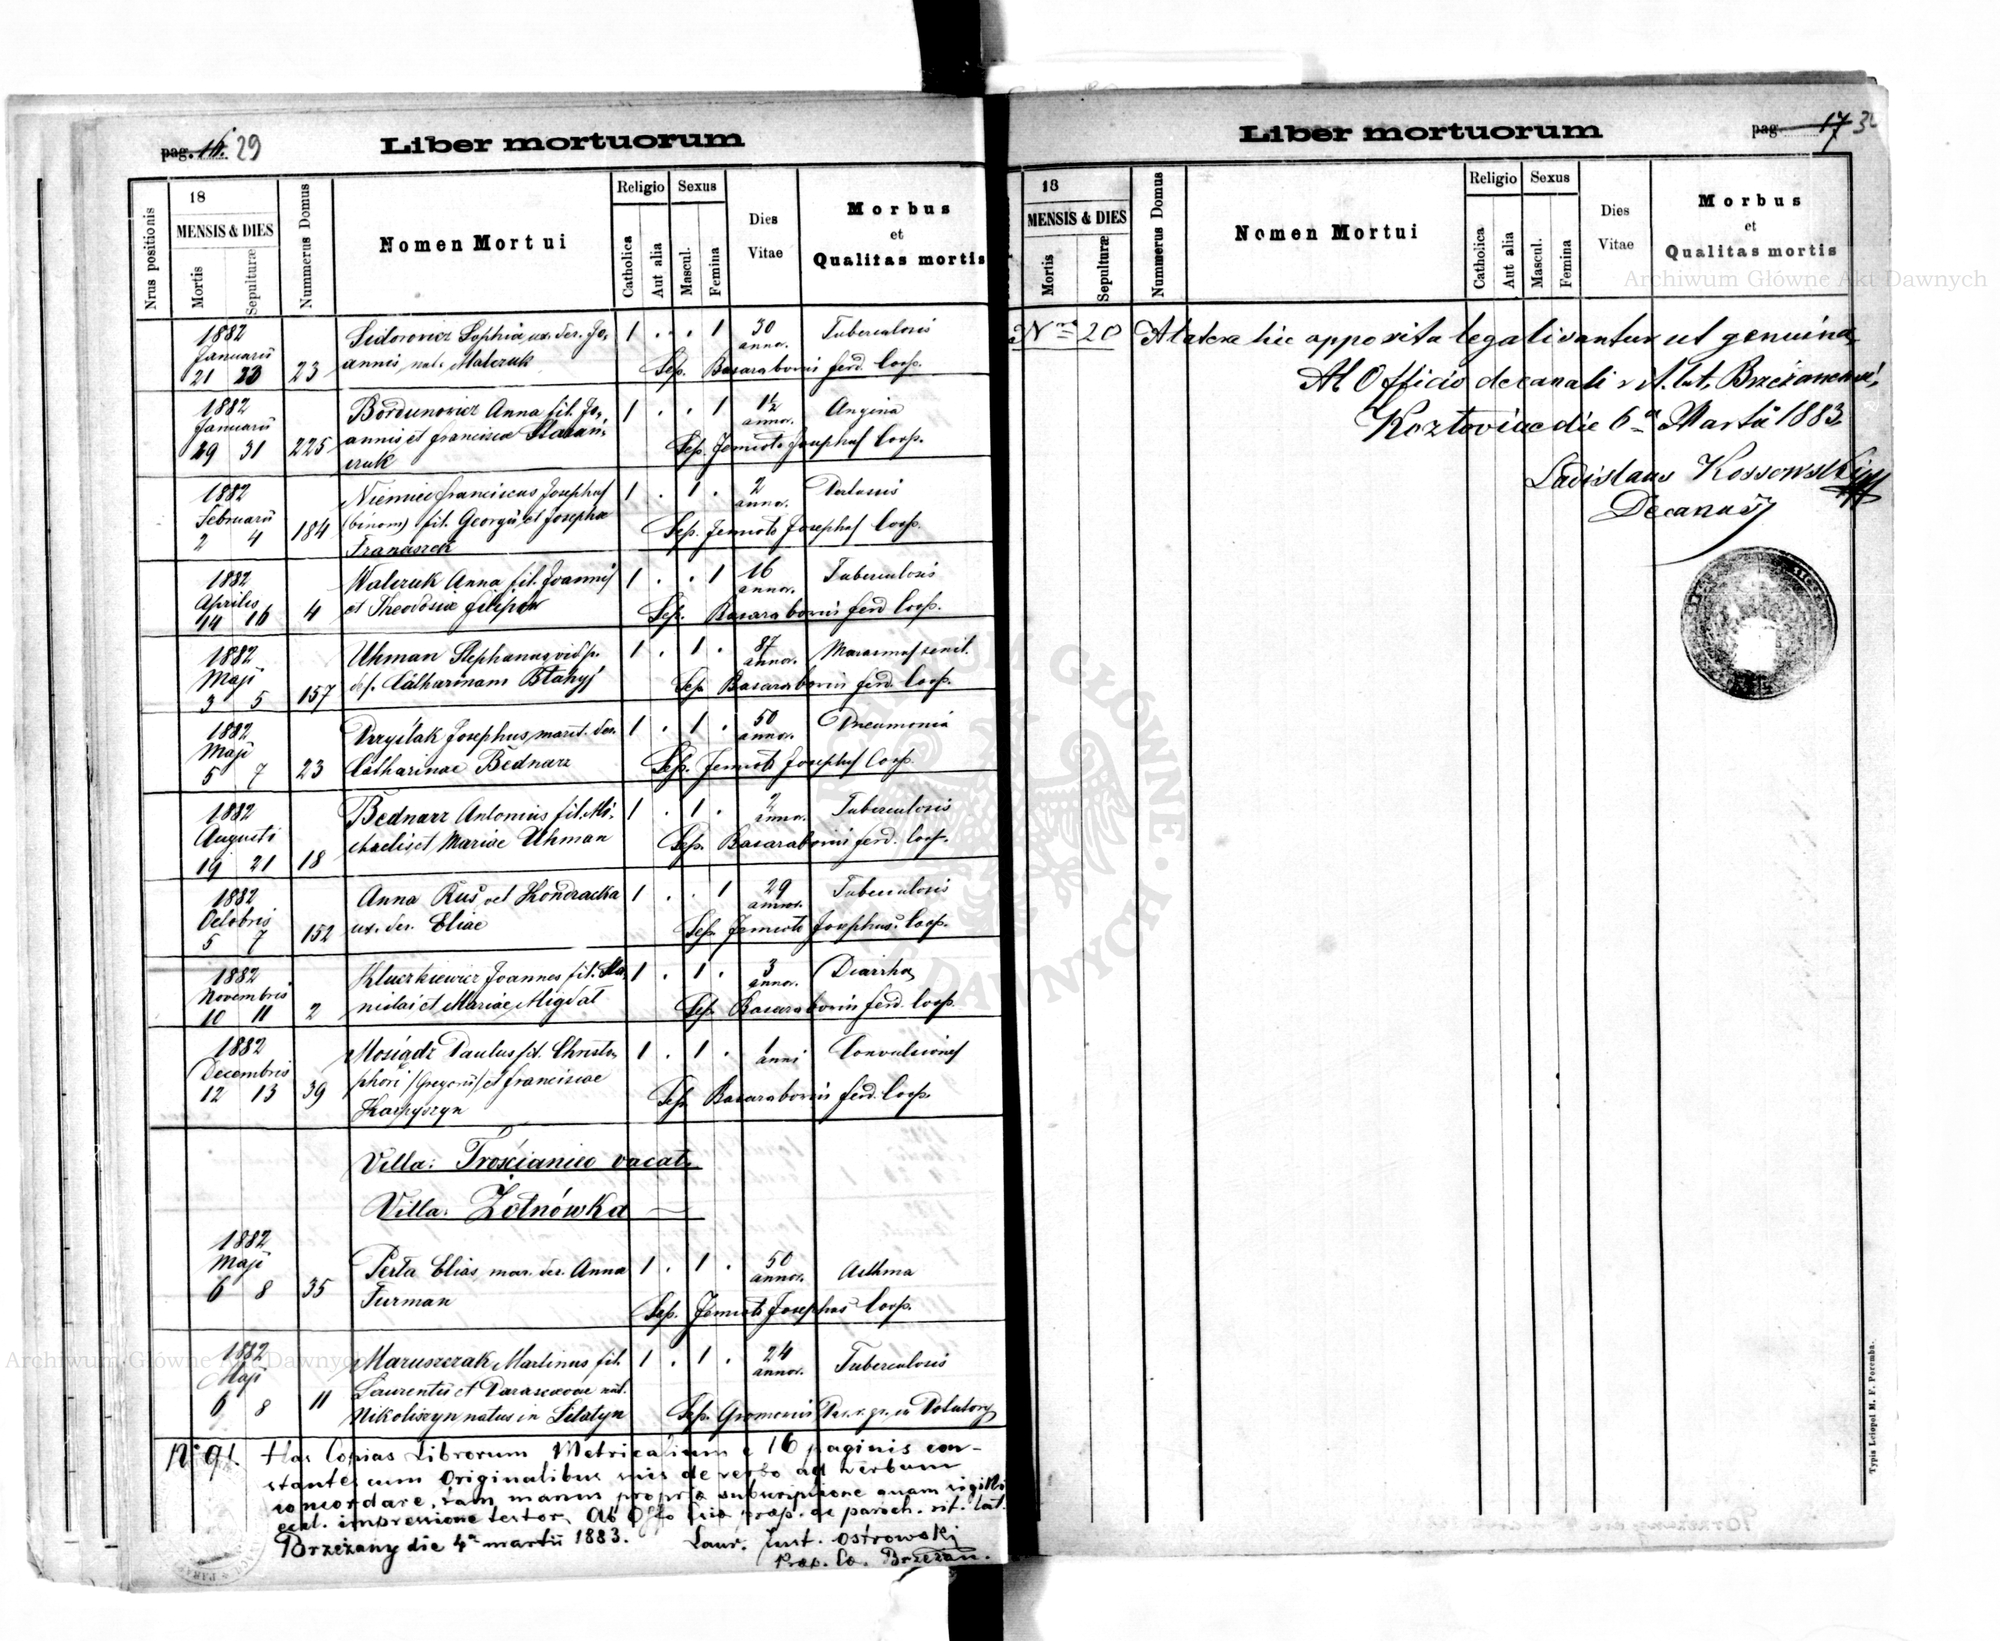 pag. 16. 29
Liber mortuorum
Nrus positionis
18
MENSIS & DIES
Mortis
Sepulturæ
Nummerus Domus
Nomen Mortui
Religio
Catholica
Aut alia
Sexus
Mascul.
Femina
Dies
Vitae
Morbus
et
Qualitas mortis
1882
Januarii
21 23 23
Sidorowicz Sophia, ux. der. Jo,
annis, nat. Malczuk
1 . . 1 30 annor. Tuberculosis
Sep. Basarabowicz ferd. Coop.
1882
Januarii
29 31 225
Bordunowicz Anna fil. Jo,
annis et Francisca
1 . . 1 1½ annor. Angina
Sep. Jemioto Josephus Coop.
1882
Februarii
2 4 184
Niemiec Franciscus Josephus
(binom) fil. Georgii et Josepha
Franaszek
1 . 1 . 2 annor. Pertussis
Sep. Jemioto Josephus Coop.
1882
Aprilis
14 16 4
Walczuk Anna fil. Joannis
et Theodosia Filipów
1 . . 1 16 annor. Tuberculosis
Sep. Basarabowicz ferd Coop.
1882
Maji
3 5 157
Uhman Stephanus vid. p.
def. Catharinam Błahyj
1 . 1 . 87 annor. Marasmus senil.
Sep. Basarabowicz ferd. Coop.
1882
Maji
5 7 23
Przyślak Josephus, marit. der.
Catharinae Bednarz
1 . 1 . 50 annor. Pneumonia
Sep. Jemioto Josephus Coop.
1882
Augusti
19 21 18
Bednarz Antonius fil. Mi,
chaelis et Mariae Uhman
1 . 1 . 2 annor. Tuberculosis
Sep. Basarabowicz ferd. Coop.
1882
Octobris
5 7 152
Anna Rus vel Kondracka
ux. der. Eliae
1 . . 1 29 annor. Tuberculosis
Sep. Jemioto Josephus. Coop.
1882
Novembris
10 11 2
Kluczkiewicz Joannes fil.
nislai et Mariae Migdał
1 . 1 . 3 annor. Diarrhoe
Sep. Basarabowicz ferd. Coop.
1882
Decembris
12 13 39
Mosiądz Paulus fil. Christo,
phori /Gregorii/ et Franciscae
Karpyszyn
1 . 1 . 1 anni Convulsiones
Sep. Basarabowicz ferd. Coop.
Villa: Trościaniec vacat.
Villa: Żołnówka
1882
Maji
6 8 35
Perta Elias, mar. der. Anna
Furman
1 . 1 . 50 annor. Asthma
Sep. Jemioto Josephus Coop.
1882
Maji
6 8 11
Maruszczak Martinus fil.
Laurentii et Parascevae nat.
Nikoliszyn natus in Litatyn
1 . 1 . 24 annor. Tuberculosis
Sep. Gromowicz Par. r. gr. in Potutory
Nº 91. Has Copias Librorum Metricalium e 16 paginis con-
stantes cum Originalibus suis de verbo ad verbum
concordare, tam manus propria subscriptione quam sigilli
eccl. impressione testor. Ab Offo paroch. rit. lat.
Brzeżany die 4ª martii 1883. Laur. Just. Ostrowski
Præp. Co. Brzeżan.
Liber mortuorum
pag. 17
18
MENSIS & DIES
Mortis
Sepulturæ
Nummerus Domus
Nomen Mortui
Religio
Catholica
Aut alia
Sexus
Mascul.
Femina
Dies
Vitae
Morbus
et
Qualitas mortis
Nro 20 A latere hic apposita legalisantur ut genuina
Ab Officio decanali r. lat. Brzeżanensi,
Kozłoviae die 6ª Martii 1883
Ladislaus Kossowski
Decanus
Typis Leiopol M. F. Poremba.
Archiwum Główne Akt Dawnych
Archiwum Główne Akt Dawnych
ARCHIWUM GŁÓWNE AKT DAWNYCH